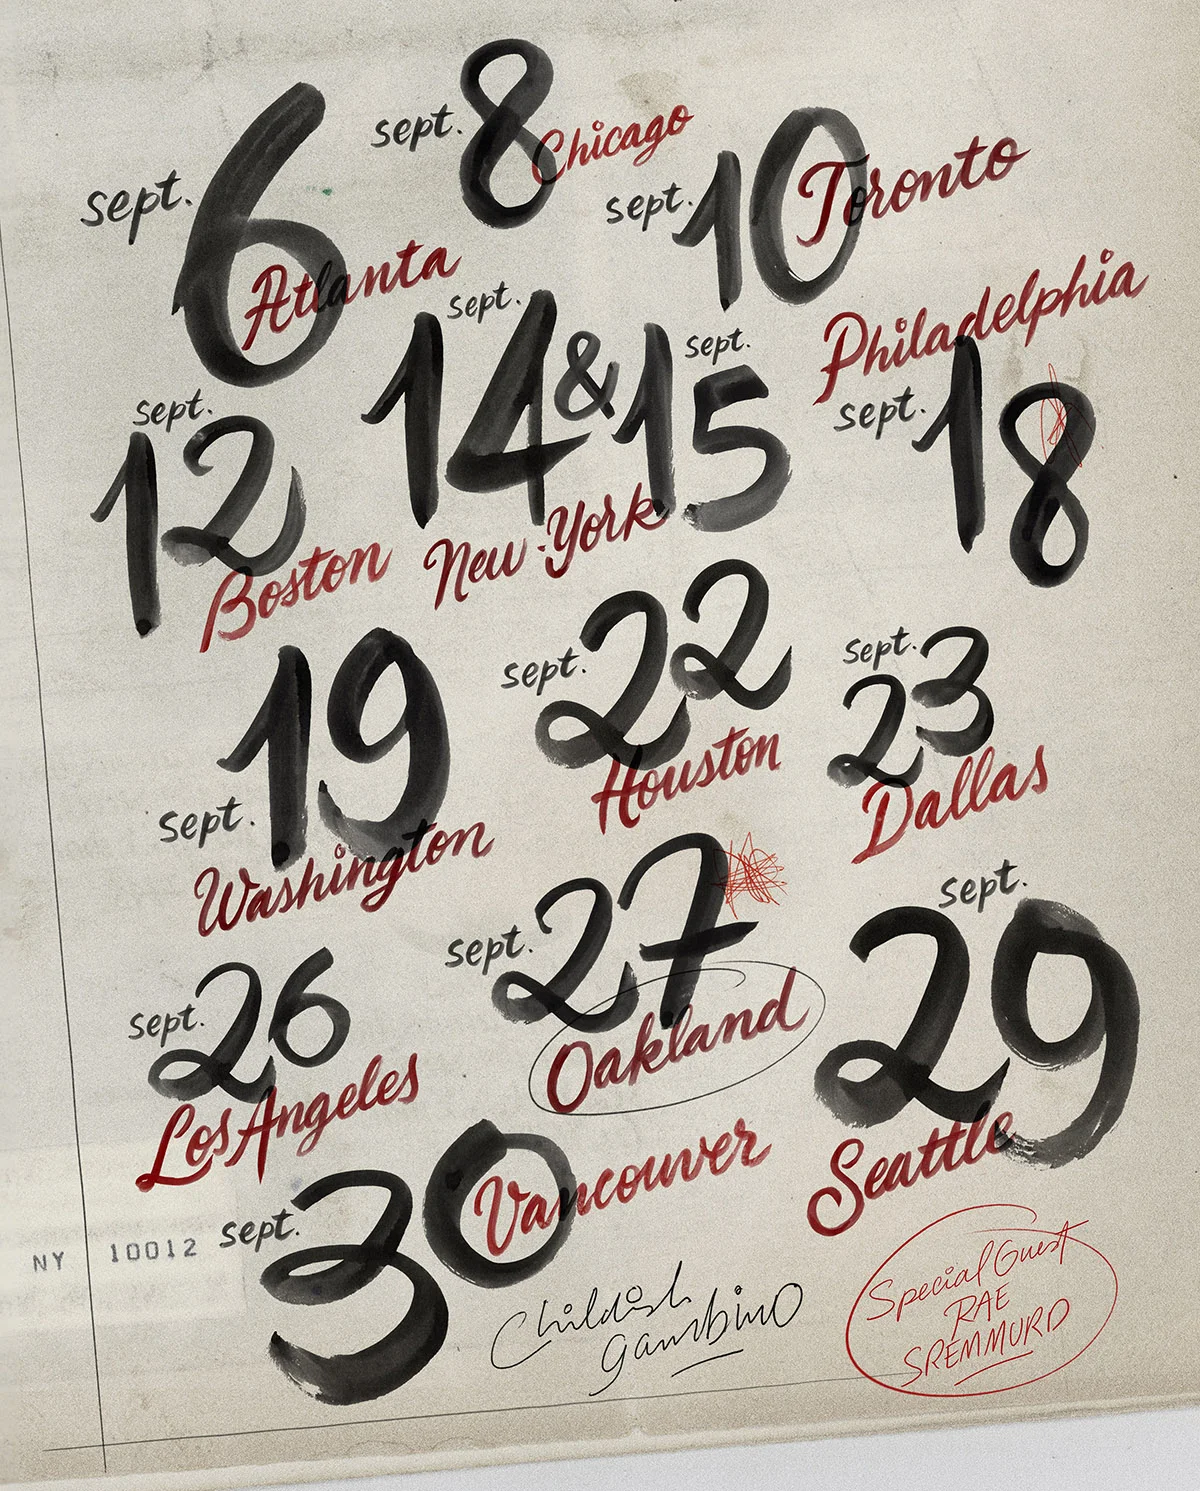 sept. 6
Atlanta
sept. 8
Chicago
sept. 10
Toronto
sept. 12
Boston
sept. 14 & sept. 15
New-York
Philadelphia
sept. 18
sept. 19
Washington
sept. 22
Houston
sept. 23
Dallas
sept. 26
Los Angeles
sept. 27
Oakland
sept. 29
Seattle
sept. 30
Vancouver
NY 10012
Childish
Gambino
Special Guest
RAE
SREMMURD